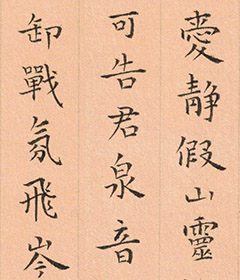 愛静假山靈
可告君泉音
卸戰氛飛岑